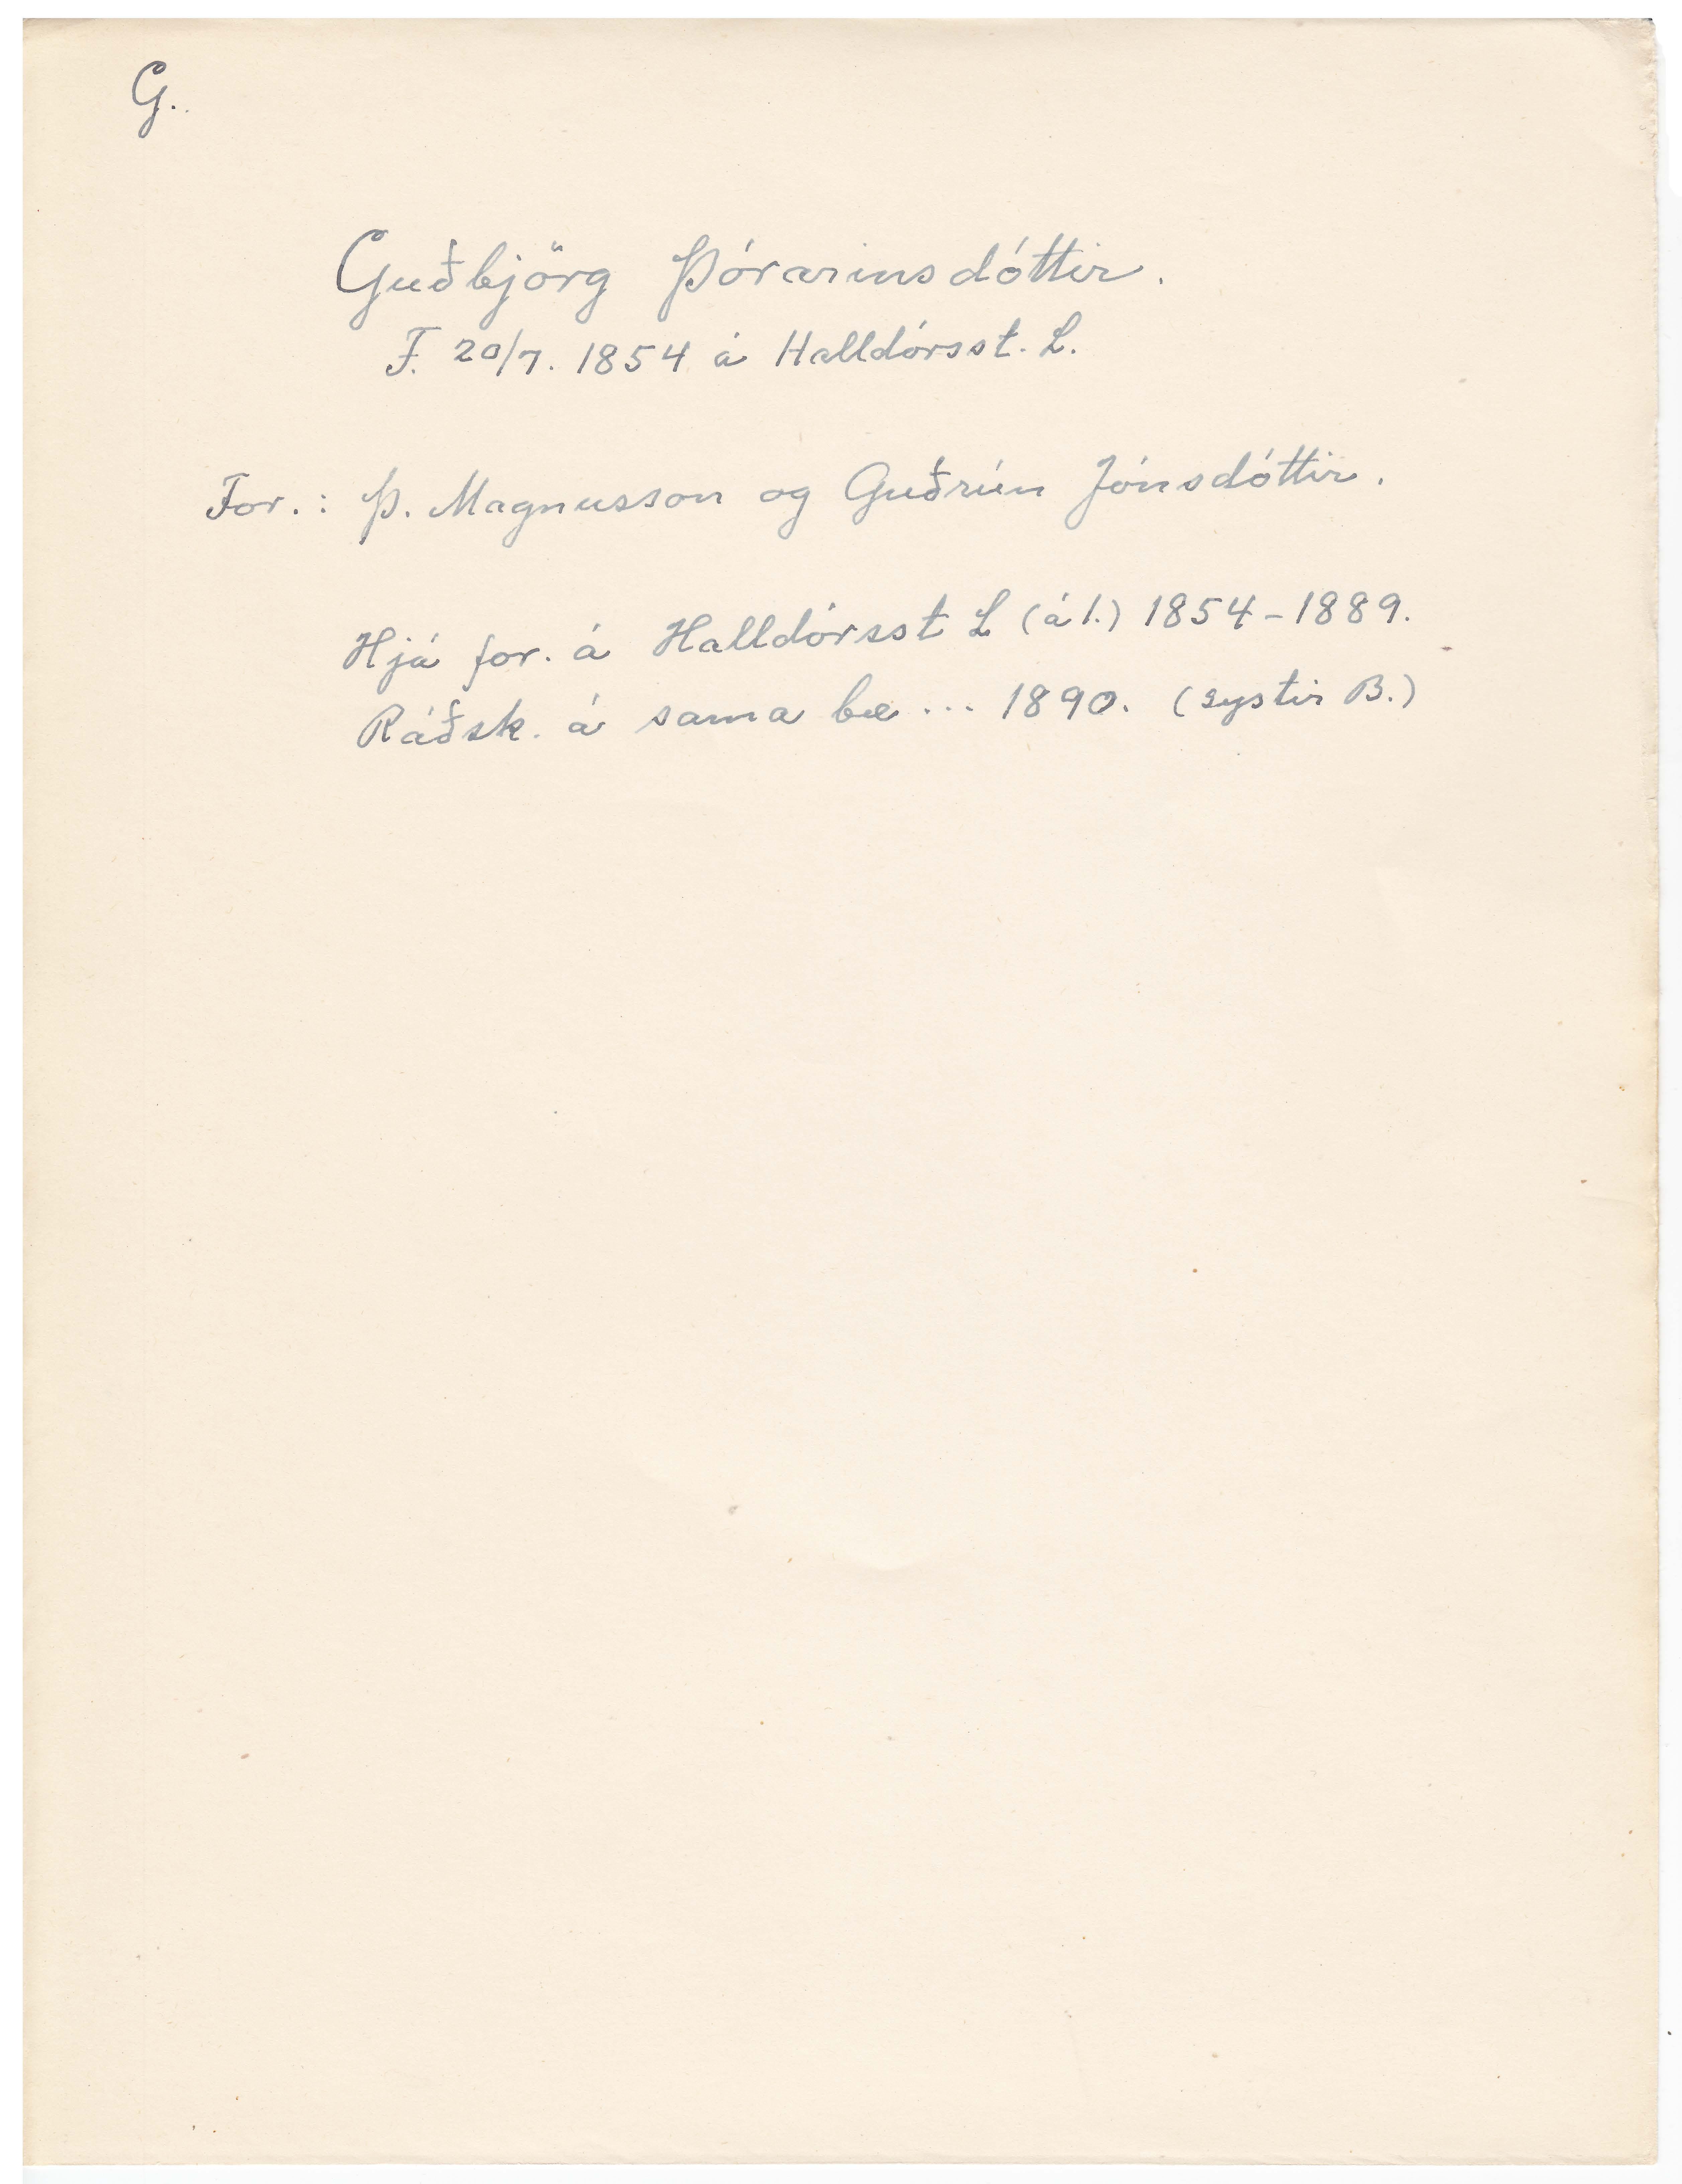 G.
Guðbjörg Þórarinsdóttir.
F. 20/7. 1854 á Halldórsst. L.
For.: Þ. Magnusson og Guðrún Jónsdóttir.
Hjá for. á Halldórsst L (á l.) 1854-1889.
Ráðsk. á sama bæ ... 1890. (systir B.)